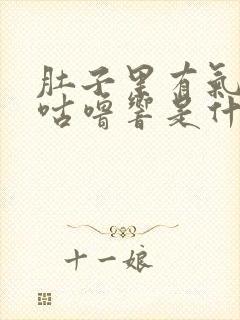 肚子里有氣
咕噜響是什
十一娘